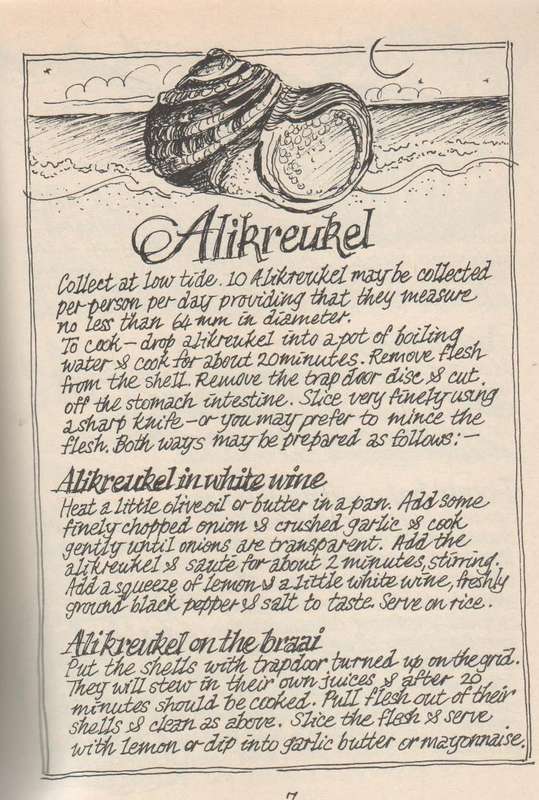 Alikreukel
Collect at low tide. 10 Alikreukel may be collected
per person per day providing that they measure
no less than 64 mm in diameter.
To cook – drop alikreukel into a pot of boiling
water & cook for about 20 minutes. Remove flesh
from the shell. Remove the trap door disc & cut
off the stomach intestine. Slice very finely using
a sharp knife – or you may prefer to mince the
flesh. Both ways may be prepared as follows:–
Alikreukel in white wine
Heat a little olive oil or butter in a pan. Add some
finely chopped onion & crushed garlic & cook
gently until onions are transparent. Add the
alikreukel & sauté for about 2 minutes, stirring.
Add a squeeze of lemon & a little white wine, freshly
ground black pepper & salt to taste. Serve on rice.
Alikreukel on the braai
Put the shells with trapdoor turned up on the grid.
They will stew in their own juices & after 20
minutes should be cooked. Pull flesh out of their
shells & clean as above. Slice the flesh & serve
with lemon or dip into garlic butter or mayonnaise.
7